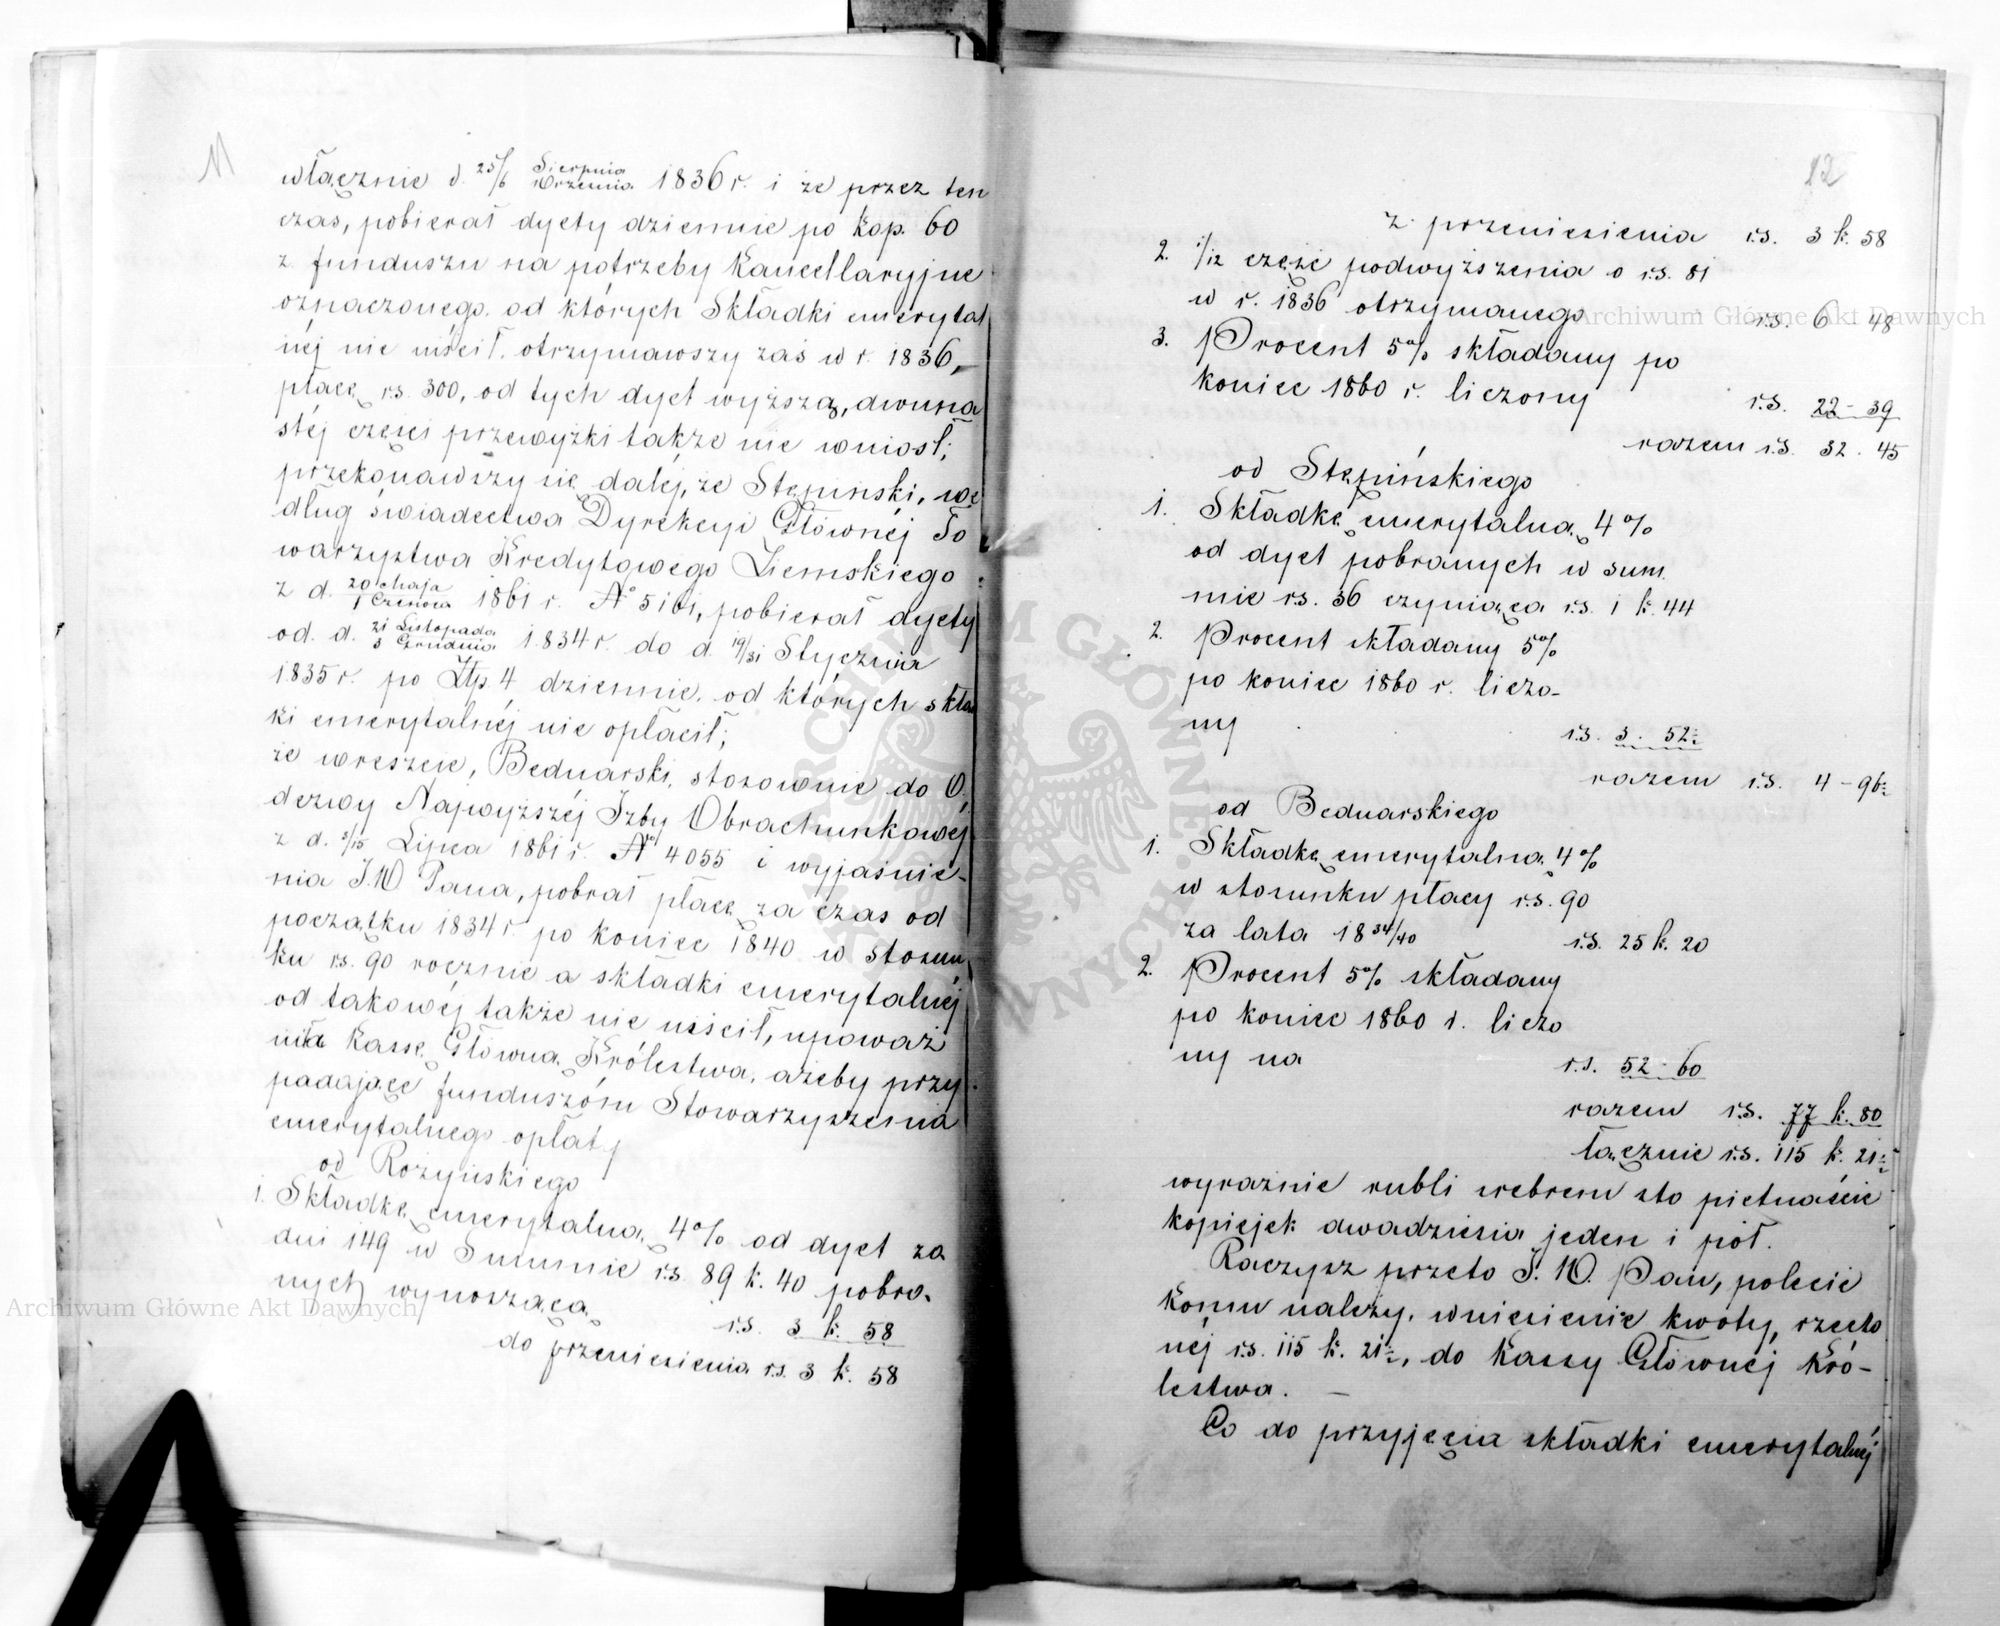 11
włącznie d. 25/6 Sierpnia/Września 1836 r. i że przez ten
czas, pobierał dyety dziennie po kop. 60
z funduszu na potrzeby Kancellaryjne
oznaczonego, od których Składki emerytal
néj nie uiścił, otrzymawszy zaś w r. 1836,
płacę rs. 300, od tych dyet wyższą, dwuna
stéj części przewyżki także nie wniósł;
przekonawszy się daléj, że Stępiński, we
dług świadectwa Dyrekcyi Głównéj To
warzystwa Kredytowego Ziemskiego
z d. 20 Maja/1 Czerwca 1861 r. No 5161, pobierał dyety
od d. 21 Listopada/3 Grudnia 1834 r. do d. 19/31 Stycznia
1835 r. po Złp. 4 dziennie, od których skła
ki emerytalnéj nie opłacił;
że wreszcie, Bednarski, stosownie do O
dezwy Najwyższéj Izby Obrachunkowéj
z d. 3/15 Lipca 1861 r. No 4055 i wyjaśnie-
nia J.W Pana, pobrał płacę za czas od
początku 1834 r. po koniec 1840 w stosun
ku rs. 90 rocznie a składki emerytalnéj
od takowéj także nie uiścił, upoważ
niła Kassę Główną Królestwa, ażeby przy
padające funduszóm Stowarzyszenia
emerytalnego opłaty
od Rożyńskiego
1. Składkę emerytalną 4% od dyet za
dni 149 w Summie rs. 89 k. 40 pobra-
nych wynoszącą
rs. 3 k. 58
do przeniesienia rs. 3 k. 58
12
z przeniesienia rs. 3 k. 58
2. 1/12 część podwyższenia o rs. 81
w r. 1836 otrzymanego rs. 6 . 48
3. Procent 5% składany po
koniec 1860 r. liczony
rs. 22 - 39
razem rs. 32 . 45
od Stępińskiego
1. Składkę emerytalną 4%
od dyet pobranych w sum
mie rs. 36 czyniąca rs. 1 k. 44
2. Procent składany 5%
po koniec 1860 r. liczo-
ny rs. 3 . 52½
razem rs. 4 - 96½
od Bednarskiego
1. Składkę emerytalną 4%
w stosunku płacy rs. 90
za lata 18 34/40 rs. 25 k. 20
2. Procent 5% składany
po koniec 1860 r. liczo
ny na
rs. 52 . 60
razem rs. 77 k. 80
łącznie rs. 115 k. 21½
wyraźnie rubli srebrem sto piętnaście
kopiejek dwadzieścia jeden i pół.
Raczysz przeto J.W. Pan, polecić
komu należy, wniesienie kwoty, rzeczo
néj rs. 115 k. 21½, do Kassy Głównéj Kró-
lestwa. –
Co do przyjęcia składki emerytalnéj
Archiwum Główne Akt Dawnych
Archiwum Główne Akt Dawnych
ARCHIWUM GŁÓWNE AKT DAWNYCH